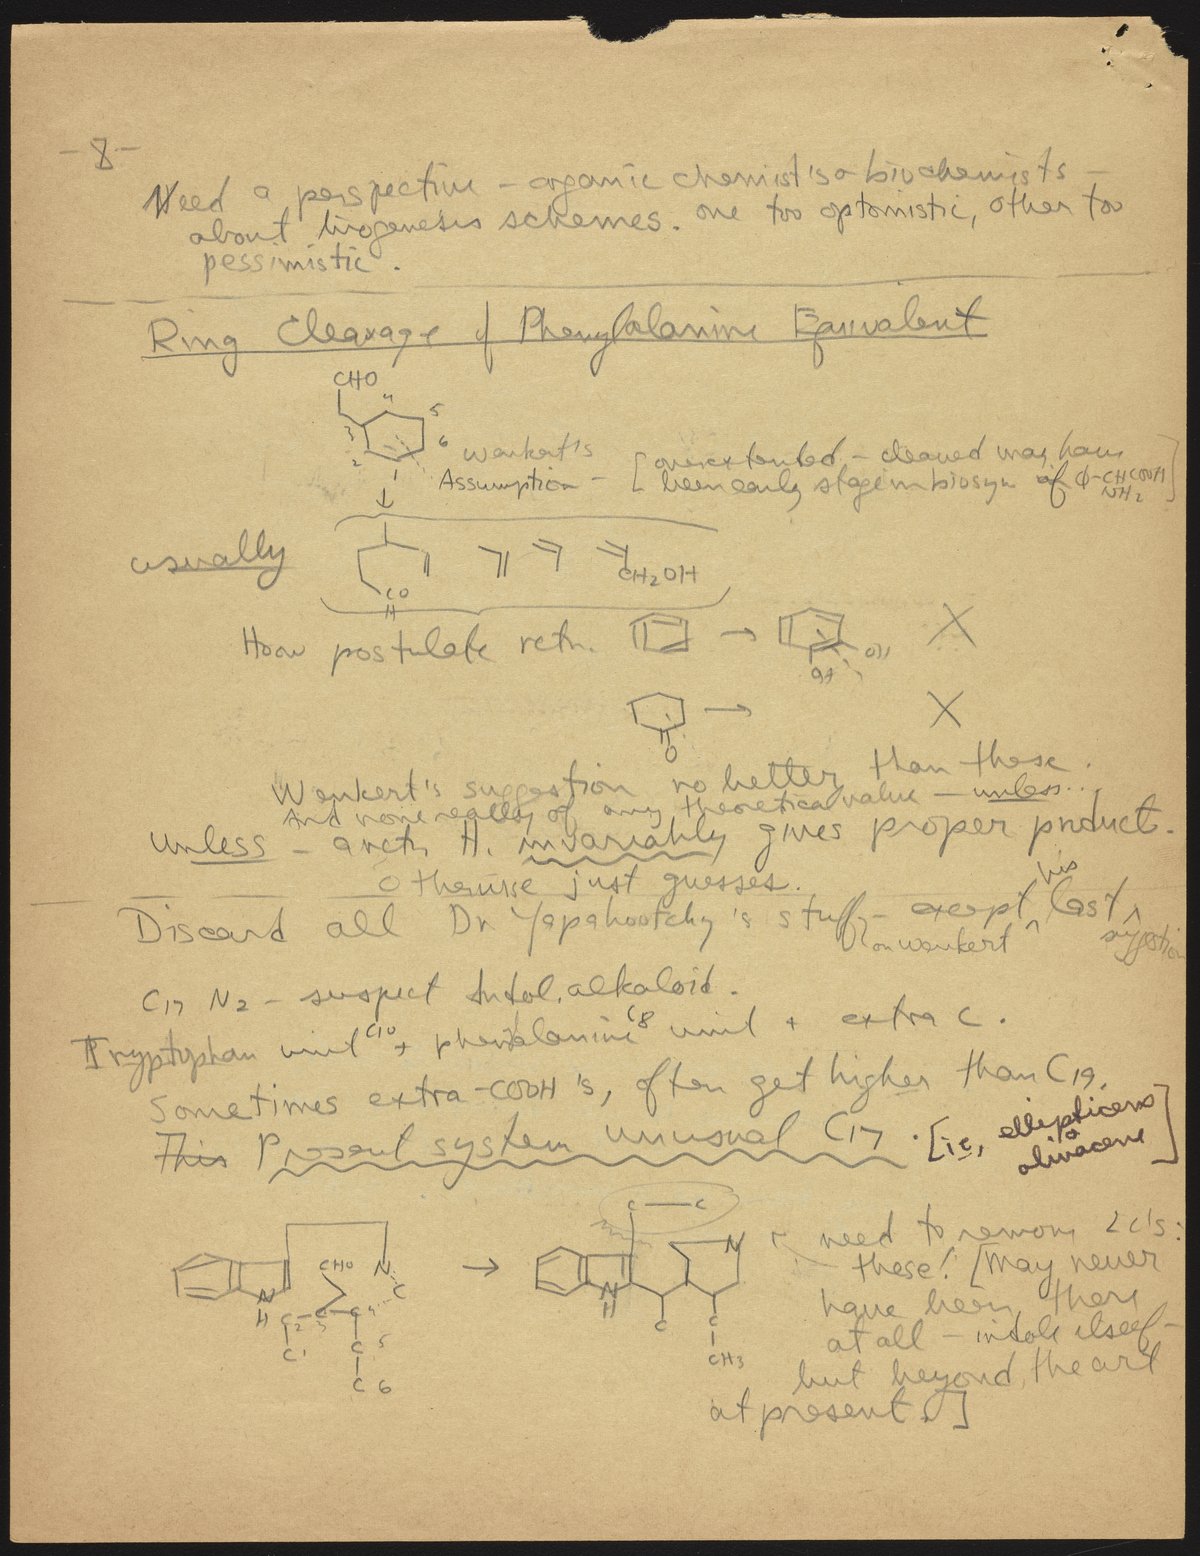 - 8 -
Need a perspective - organic chemist's or biochemists -
about biogenesis schemes. one too optomistic, other too
pessimistic.
Ring Cleavage of Phenylalanine Equivalent
CHO
4
5
3
6
2
1
Wenkert's
Assumption -
[overextended - cleaved may have
been early stage in biosyn of φ-CHCOOH]
NH2
usually
CO
H
CH2OH
How postulate rctn.
OH
OH
X
O
X
Wenkert's suggestion no better than these.
And none really of any theoretical value - unless...
unless - a rctn. H. invariably gives proper product.
Otherwise just guesses.
Discard all Dr Yapahootchy's stuff - except his last suggestion
on wenkert
C17 N2 - suspect Indol. alkaloid.
Tryptyphan unit C10 + phenylalanine C8 unit + extra C.
Sometimes extra -COOH's, often get higher than C19.
This Present system unusual C17. [ie, ellipticene
or
olivacene]
C — C
CHO N
N
H
C
C2 - C3 - C4
C1
C 5
C 6
N
N
H
C
C
CH3
need to remove 2 C's:
these! [May never
have been there
at all - indole itself -
but beyond the art
at present.]